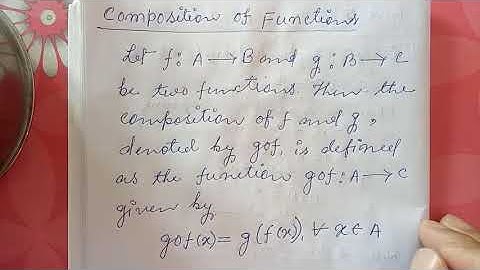 Composition of Functions
Let f: A → B and g: B → C
be two functions. Then the
composition of f and g,
denoted by gof, is defined
as the function gof: A → C
given by
gof(x) = g(f(x)), ∀ x ∈ A